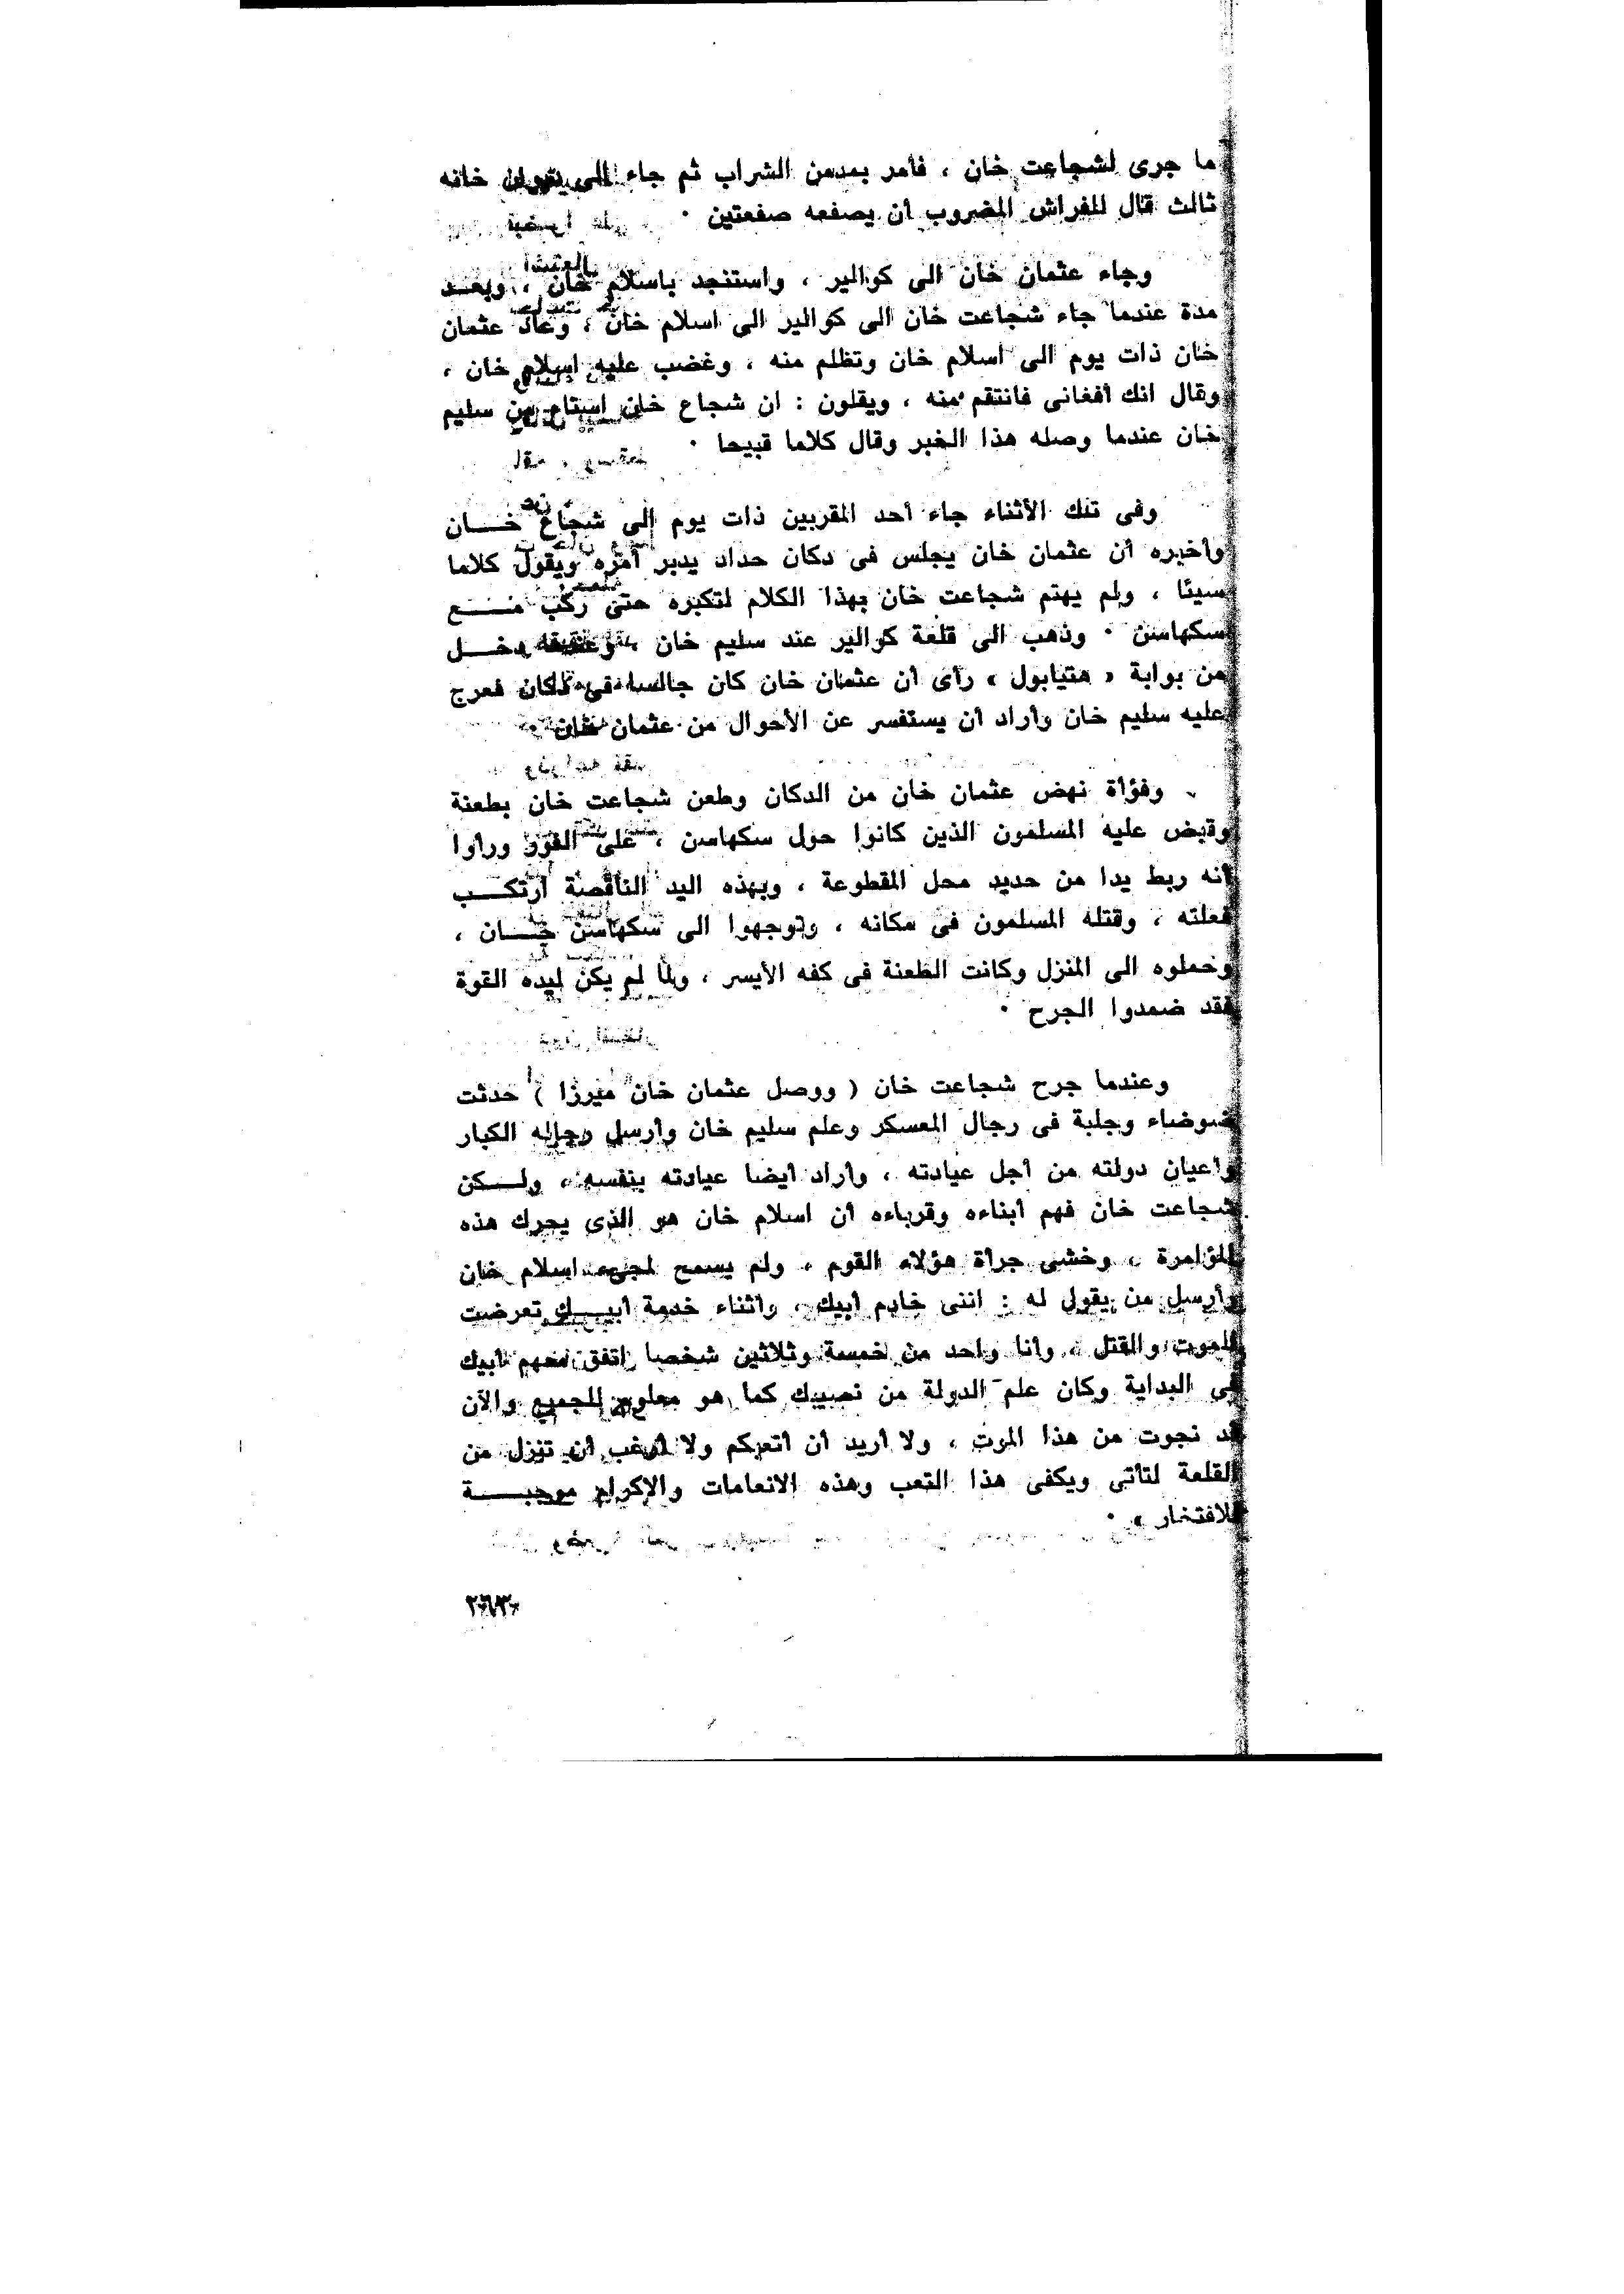 ما جرى لشجاعت خان ، فأمر بمدمن الشراب ثم جاء الى ديوان خانه
ثالث قال للفراش المضروب أن يصفعه صفعتين ٠
وجاء عثمان خان الى كوالير ، واستنجد باسلام خان ، وبعد
مدة عندما جاء شجاعت خان الى كوالير الى اسلام خان ، وعاد عثمان
خان ذات يوم الى اسلام خان وتظلم منه ، وغضب عليه اسلام خان ،
وقال انك أفغانى فانتقم منه ، ويقلون : ان شجاع خان استاء من سليم
خان عندما وصله هذا الخبر وقال كلاما قبيحا ٠
وفى تلك الأثناء جاء أحد المقربين ذات يوم إلى شجاع خان
وأخبره أن عثمان خان يجلس فى دكان حداد يدبر أمره ويقول كلاما
سيئا ، ولم يهتم شجاعت خان بهذا الكلام لتكبره حتى ركب مع
سكهاسن ٠ وذهب الى قلعة كوالير عند سليم خان ، دخل
من بوابة « هتيابول » رأى أن عثمان خان كان جالسا فى دكان فعرج
عليه سليم خان وأراد أن يستفسر عن الأحوال من عثمان خان ٠
وفؤأة نهض عثمان خان من الدكان وطعن شجاعت خان بطعنة
وقبض عليه المسلمون الذين كانوا حول سكهاسن ، على الفور ورأوا
أنه ربط يدا من حديد محل المقطوعة ، وبهذه اليد الناقصة ارتكب
فعلته ، وقتله المسلمون فى مكانه ، وتوجهوا الى سكهاسن خان ،
وحملوه الى المنزل وكانت الطعنة فى كفه الأيسر ، ولما لم يكن ليده القوة
فقد ضمدوا الجرح ٠
وعندما جرح شجاعت خان ( ووصل عثمان خان ميرزا ) حدثت
ضوضاء وجلبة فى رجال المعسكر وعلم سليم خان وأرسل رجاله الكبار
واعيان دولته من أجل عيادته ، وأراد أيضا عيادته بنفسه ، ولكن
شجاعت خان فهم أبناءه وقرباءه أن اسلام خان هو الذى يحرك هذه
المؤامرة ، وخشى جرأة هؤلاء القوم ، ولم يسمح لمجىء اسلام خان
وأرسل من يقول له : اننى خادم أبيك ، واثناء خدمة أبيك تعرضت
للموت والقتل ، وأنا واحد من خمسة وثلاثين شخصا اتفق معهم أبيك
فى البداية وكان علم الدولة من نصيبك كما هو معلوم للجميع والآن
قد نجوت من هذا الموت ، ولا أريد أن أتعبكم ولا أرغب أن تنزل من
القلعة لتأتى ويكفى هذا التعب وهذه الانعامات والإكرام موجبة
للافتخار » ٠